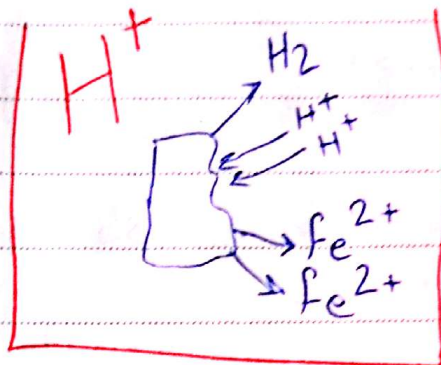 H+
H2
H+
H+
fe2+
fe2+